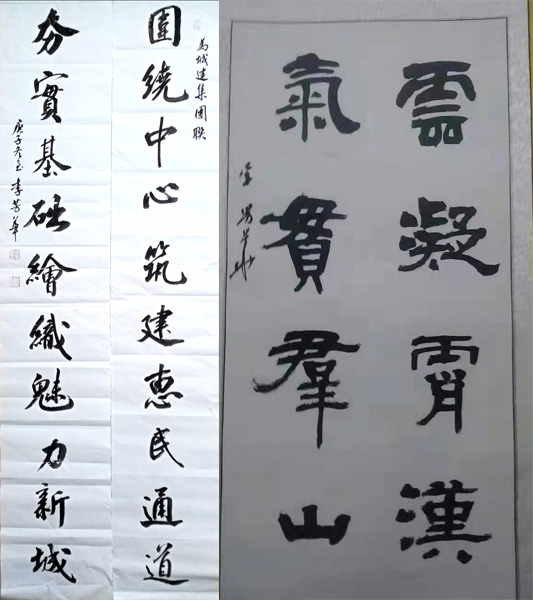 为城建集團联
圍繞中心筑建惠民通道
夯實基础繪織魅力新城
庚子冬至李芳華
雲凝霄漢
氣貫羣山